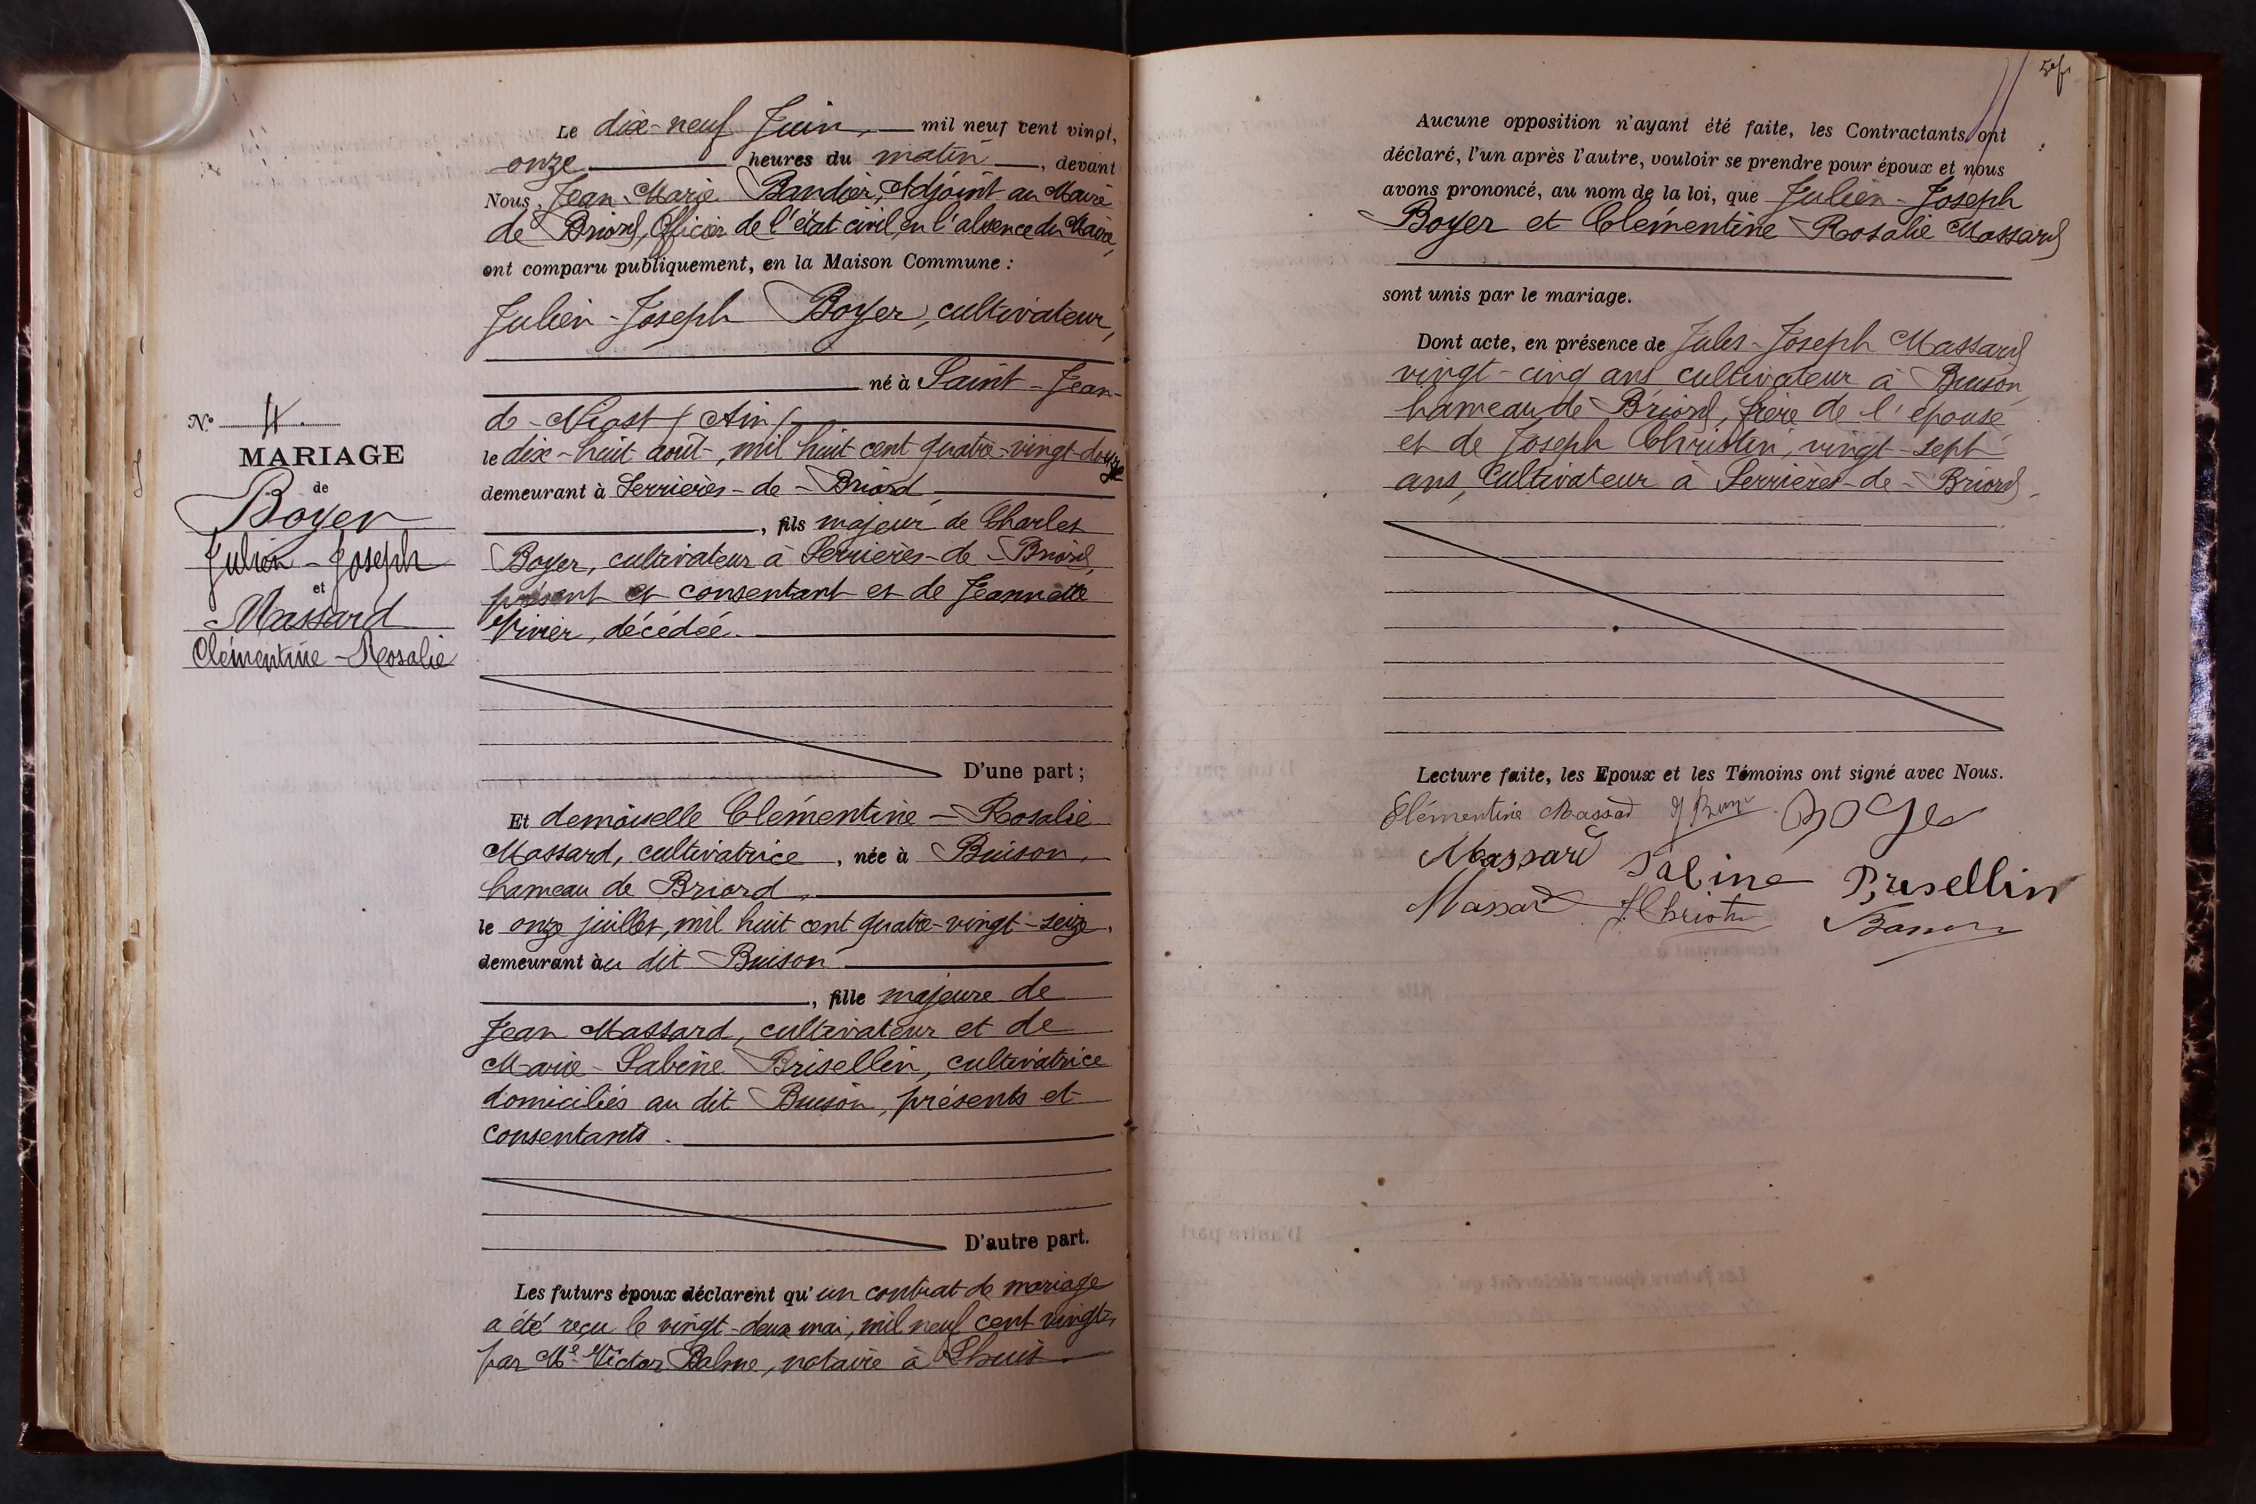 Le dix-neuf Juin, mil neuf cent vingt,
onze heures du matin, devant
Nous, Jean-Marie Baudier, Adjoint au Maire
de Briord, Officier de l'état civil, en l'absence du Maire,
ont comparu publiquement, en la Maison Commune :
Julien-Joseph Boyer, cultivateur,
né à Saint-Jean-
de-Niost (Ain)
le dix-huit août, mil huit cent quatre-vingt-douze
demeurant à Serrières-de-Briord
, fils majeur de Charles
Boyer, cultivateur à Serrières-de-Briord,
présent et consentant et de Jeannette
Vivier, décédée.
D'une part ;
Nº 4.
MARIAGE
de
Boyer
Julien-Joseph
et
Massard
Clémentine-Rosalie
Et demoiselle Clémentine-Rosalie
Massard, cultivatrice, née à Buison,
hameau de Briord,
le onze juillet, mil huit cent quatre-vingt-seize,
demeurant au dit Buison
, fille majeure de
Jean Massard, cultivateur et de
Marie-Sabine Brisellin, cultivatrice
domiciliés au dit Buison, présents et
consentants.
D'autre part.
Les futurs époux déclarent qu'un contrat de mariage
a été reçu le vingt-deux mai, mil neuf cent vingt,
par Me Victor Balme, notaire à Lhuis
Aucune opposition n'ayant été faite, les Contractants ont
déclaré, l'un après l'autre, vouloir se prendre pour époux et nous
avons prononcé, au nom de la loi, que Julien-Joseph
Boyer et Clémentine Rosalie Massard
sont unis par le mariage.
Dont acte, en présence de Jules-Joseph Massard
vingt-cinq ans, cultivateur à Buison,
hameau de Briord, frère de l'épouse
et de Joseph Christin, vingt-sept
ans, Cultivateur à Serrières-de-Briord.
Lecture faite, les Epoux et les Témoins ont signé avec Nous.
Clémentine Massard Boyer
Massard Sabine Prisellin
Massard J Christin